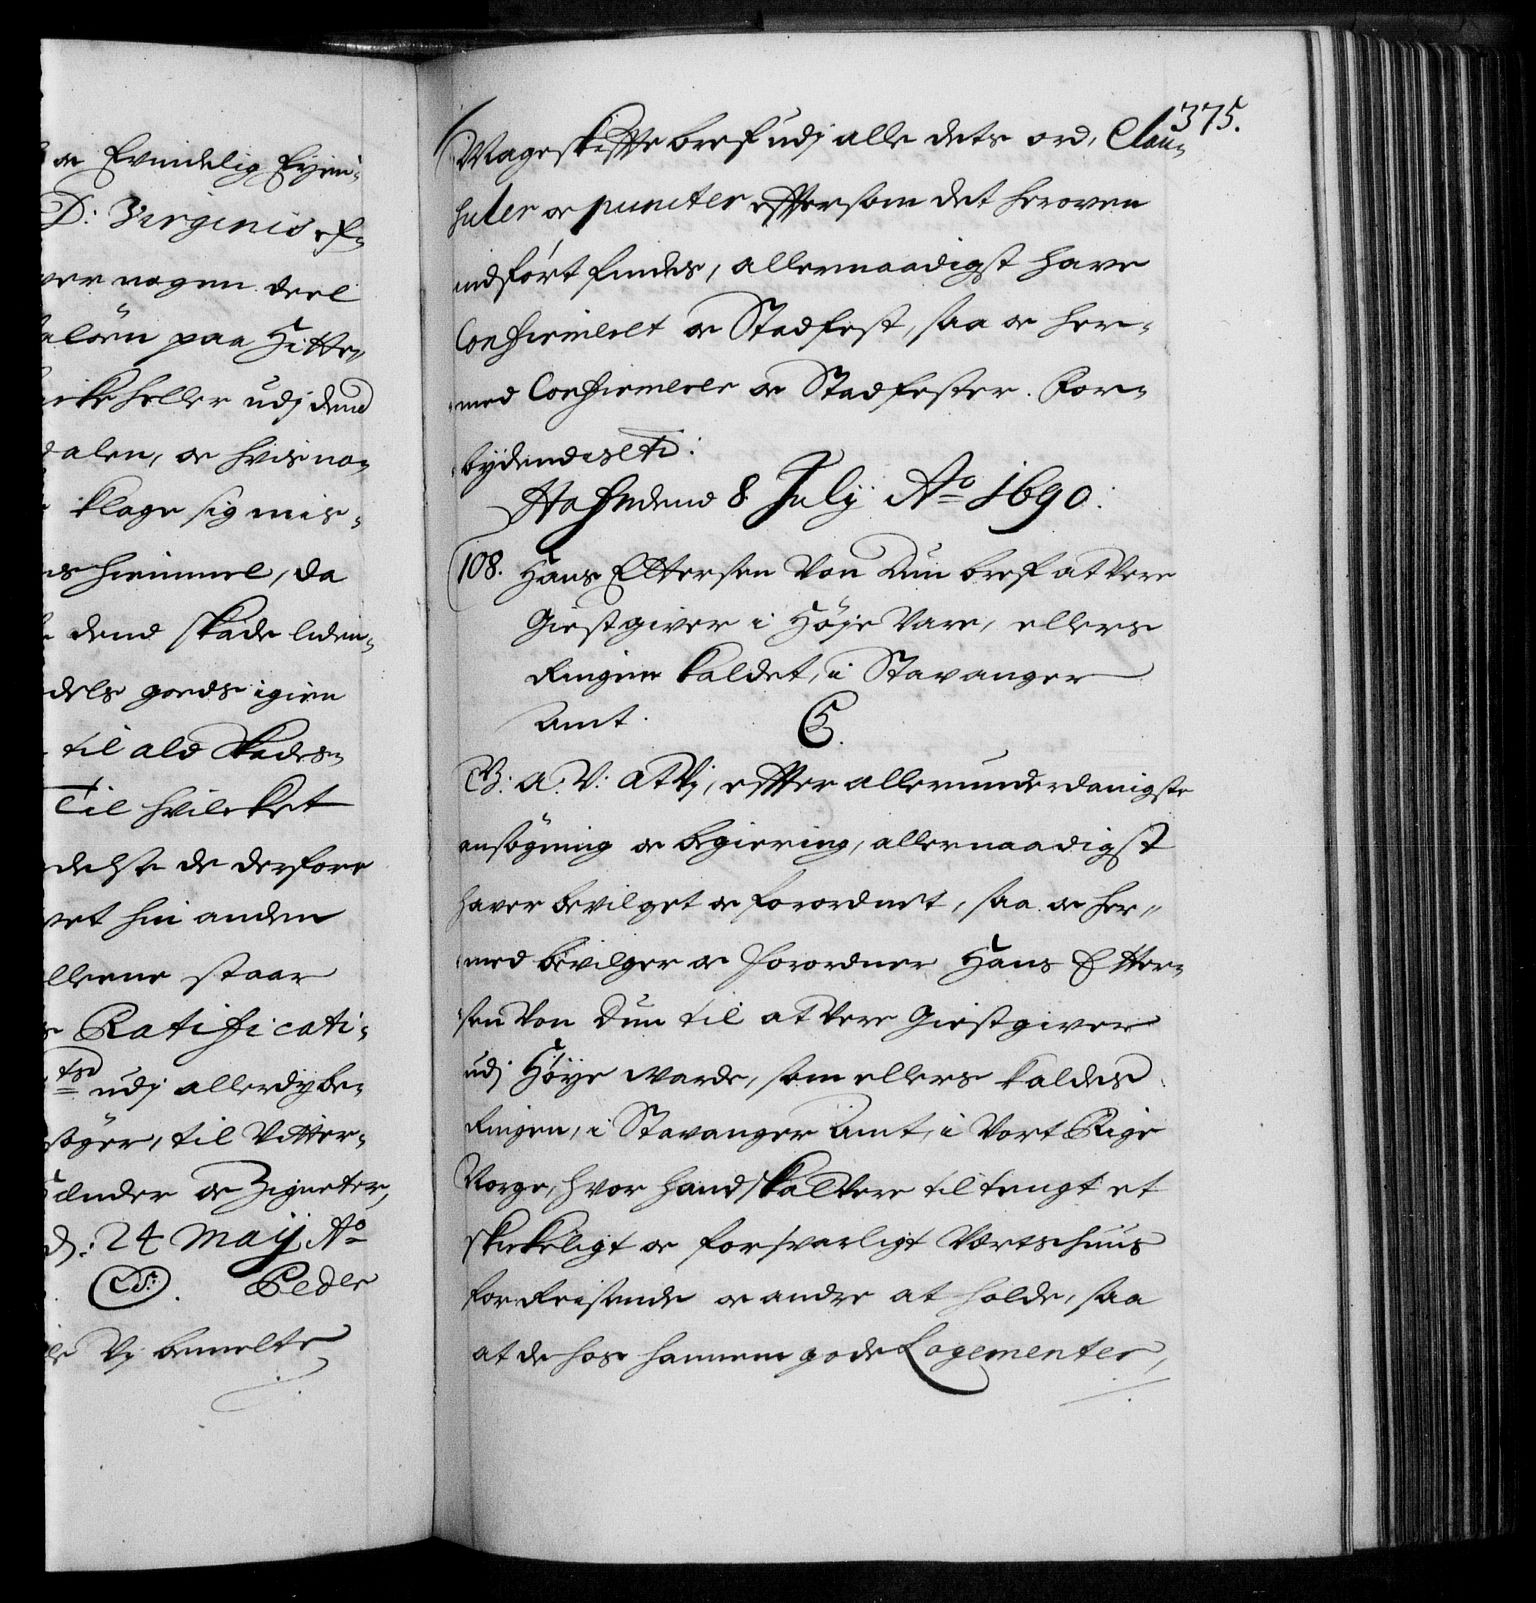 og Evindelig Eijen-
D: Virginis ef-
ver nogen deel
alöen paa Hitte-
icke heller udj dend
dalen, og hvis no-
klage sig mis-
hiemmel, da
dend skade liden-
dels goeds igien
til ald skades-
Til hvilcket
delse de derfore
vet hin anden
lleene staar
Ratificati-
udj allerdybe-
söger, til Vitter-
hænder og Zigneter,
d: 24 Maij Ao
LS. Peder
Vj bemelte
375.
Mageskiffte bref udj alle dets ord, Clau-
suler og puncter effter som det heroven
indfört findes, allernaadigst have
Confirmeret og Stadfest, saa og her-
med Confirmerer og Stadfester. For-
bydendes etc:
Hafn dend 8 Julij Ao 1690.
108. Hans Ettersen Von Dun bref at Vere
Giestgiver i Höje Vare, ellers
Ringen kaldet, i Stavanger
Amt. C5.
G: A: V: at Vj, effter allerunderdanigste
ansögning og begiering, allernaadigst
haver bevilget og forordnet, saa og her-
med bevilger og forordner Hans Etter-
sen Von Dun til at Vere Giestgiver
udj Höye Warde, som ellers kaldes
Ringen, i Stavanger Amt, i Vort Rige
Norge, hvor hand skal Vere tiltengt et
skickeligt og forsvarligt Vertshuus
for Reisende og andre at holde, saa
at de hos hannem gode Logementer,